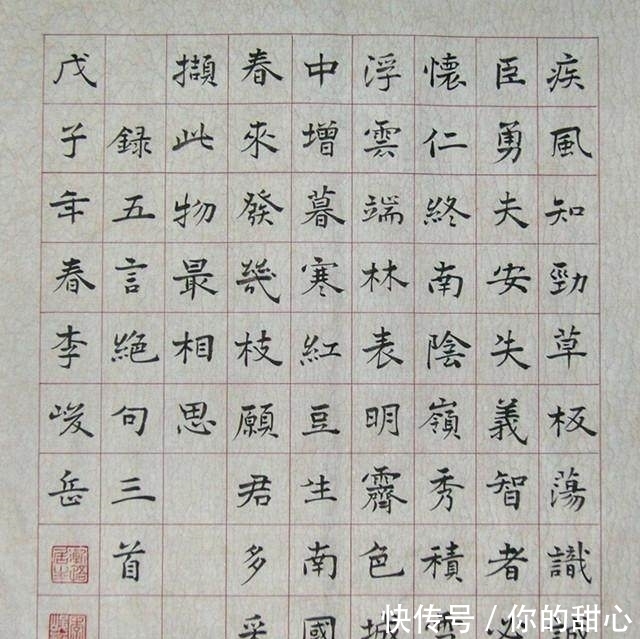 疾風知勁草板蕩識
臣勇夫安失義智者
懷仁終南陰嶺秀積
浮雲端林表明霽色城
中增暮寒紅豆生南國
春來發幾枝願君多采
擷此物最相思
録五言絕句三首
戊子年春李峻岳
快传号 / 你的甜心